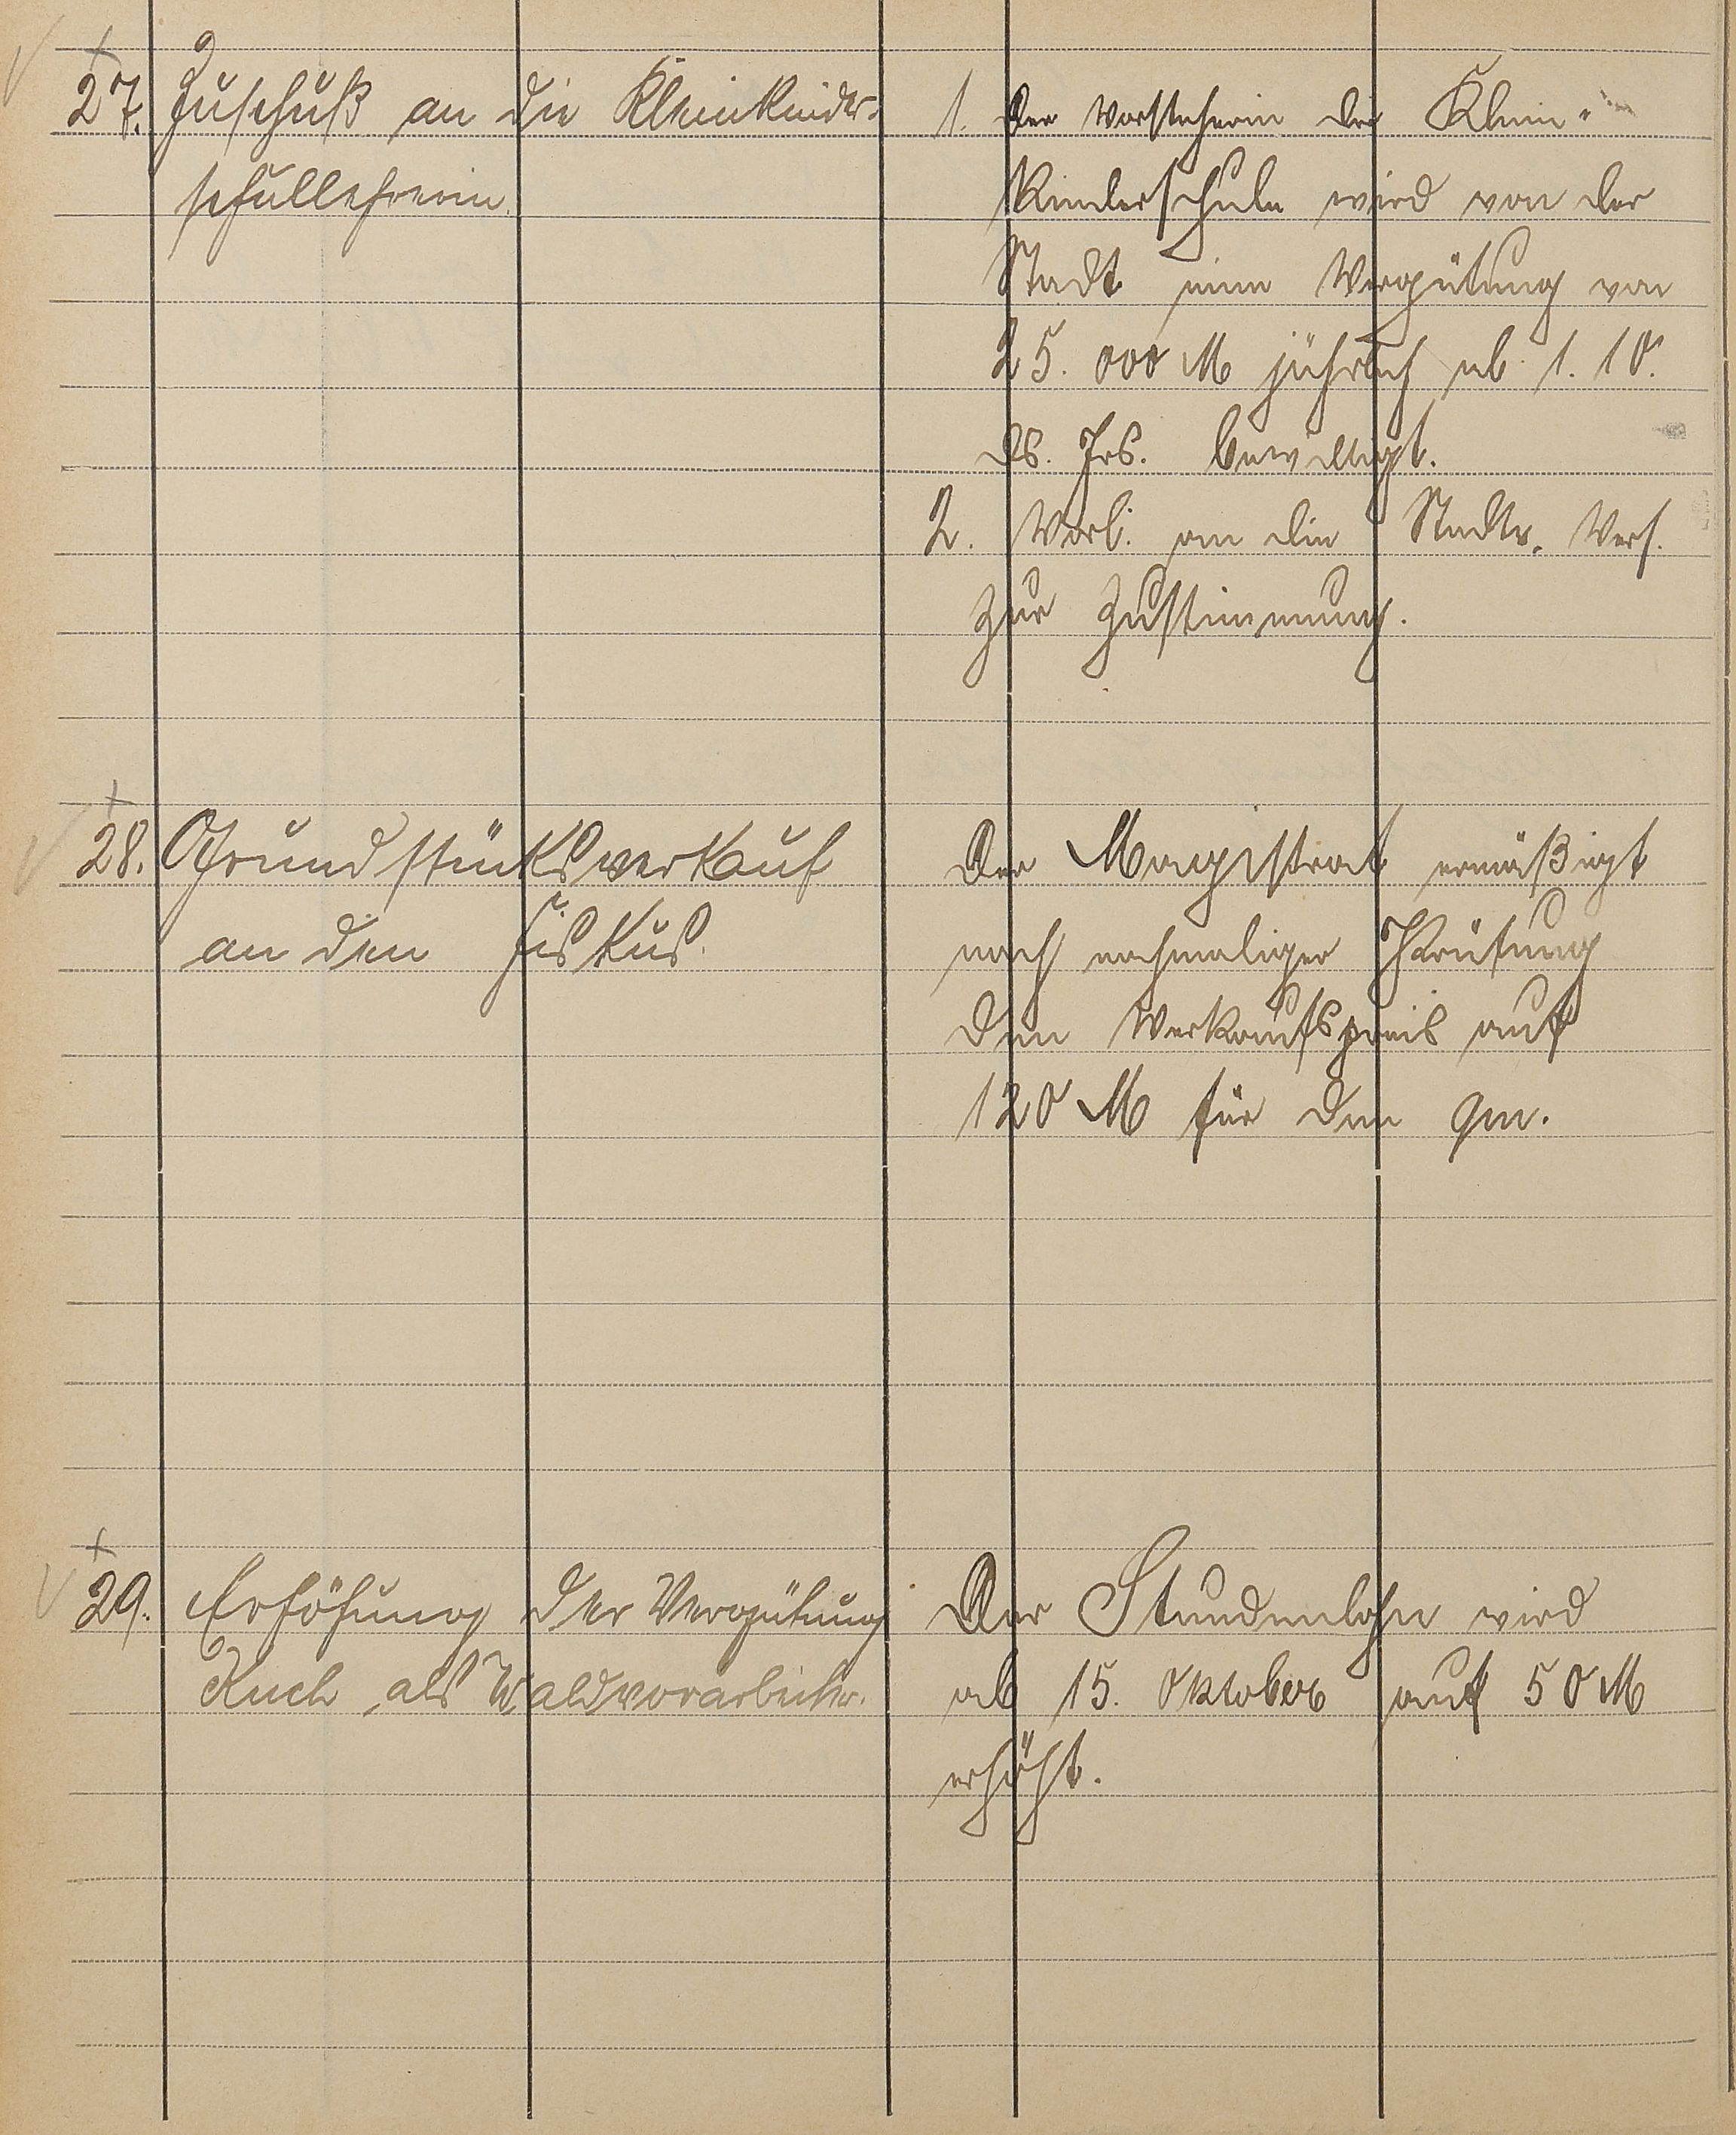 27. Zuschuß an die Kleinkinder-
schullehrerin.
1. Der Vorsteherin der Klein-
kinderschule wird von der
Stadt eine Vergütung von
25.000 M jährlich ab 1.10.
ds. Jrs. bewilligt.
2. Vorl. an die Stadtv. Vers.
zur Zustimmung.
28. Grundstücksverkauf
an den Fiskus.
Der Magistrat ermäßigt
nach nochmaliger Prüfung
den Verkaufspreis auf
120 M für den qm.
29. Erhöhung der Vergütung
als Waldvorarbeiter.
Der Stundenlohn wird
ab 15. Oktober auf 50 M
erhöht.